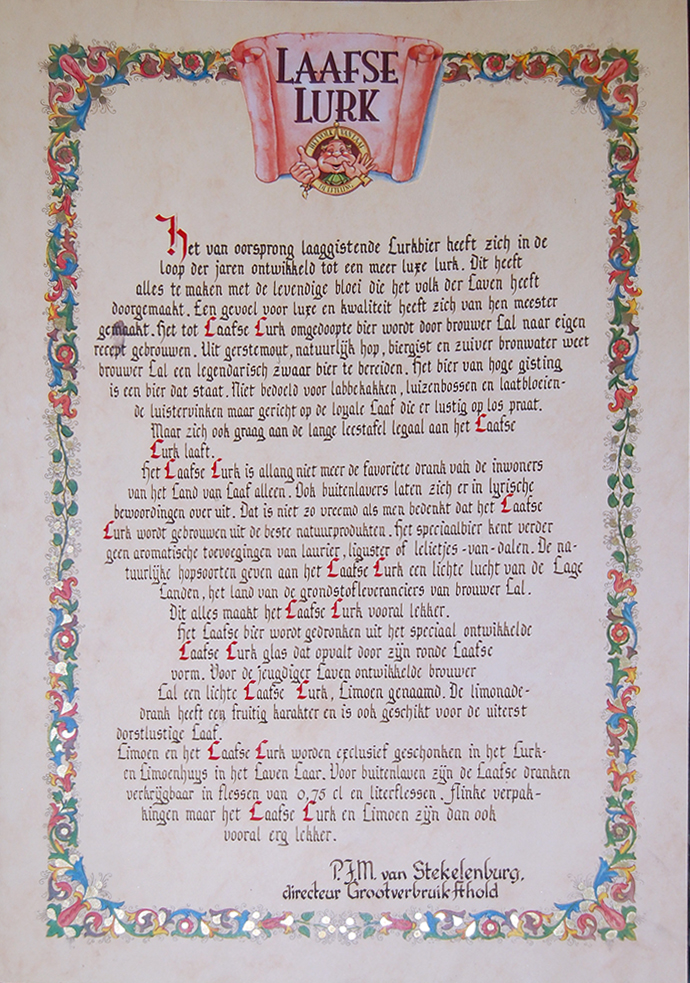 LAAFSE
LURK
HET VOLK VAN LAAF
DE EFTELING
Het van oorsprong laaggistende Lurkbier heeft zich in de
loop der jaren ontwikkeld tot een meer luxe lurk. Dit heeft
alles te maken met de levendige bloei die het volk der Laven heeft
doorgemaakt. Een gevoel voor luxe en kwaliteit heeft zich van hen meester
gemaakt. Het tot Laafse Lurk omgedoopte bier wordt door brouwer Lal naar eigen
recept gebrouwen. Uit gerstemout, natuurlijk hop, biergist en zuiver bronwater weet
brouwer Lal een legendarisch zwaar bier te bereiden. Het bier van hoge gisting
is een bier dat staat. Niet bedoeld voor labbekakken, luizenbossen en laatbloeien-
de luistervinken maar gericht op de loyale Laaf die er lustig op los praat.
Maar zich ook graag aan de lange leestafel legaal aan het Laafse
Lurk laaft.
Het Laafse Lurk is allang niet meer de favoriete drank van de inwoners
van het Land van Laaf alleen. Ook buitenlavers laten zich er in lyrische
bewoordingen over uit. Dat is niet zo vreemd als men bedenkt dat het Laafse
Lurk wordt gebrouwen uit de beste natuurprodukten. Het speciaalbier kent verder
geen aromatische toevoegingen van laurier, liguster of lelietjes-van-dalen. De na-
tuurlijke hopsoorten geven aan het Laafse Lurk een lichte lucht van de Lage
Landen, het land van de grondstofleveranciers van brouwer Lal.
Dit alles maakt het Laafse Lurk vooral lekker.
Het Laafse bier wordt gedronken uit het speciaal ontwikkelde
Laafse Lurk glas dat opvalt door zijn ronde Laafse
vorm. Voor de jeugdiger Laven ontwikkelde brouwer
Lal een lichte Laafse Lurk, Limoen genaamd. De limonade-
drank heeft een fruitig karakter en is ook geschikt voor de uiterst
dorstlustige Laaf.
Limoen en het Laafse Lurk worden exclusief geschonken in het Lurk-
en Limoenhuys in het Laven Laar. Voor buitenlaven zijn de Laafse dranken
verkrijgbaar in flessen van 0,75 cl en literflessen. Flinke verpak-
kingen maar het Laafse Lurk en Limoen zijn dan ook
vooral erg lekker.
P.J.M. van Stekelenburg,
directeur Grootverbruik Sthold